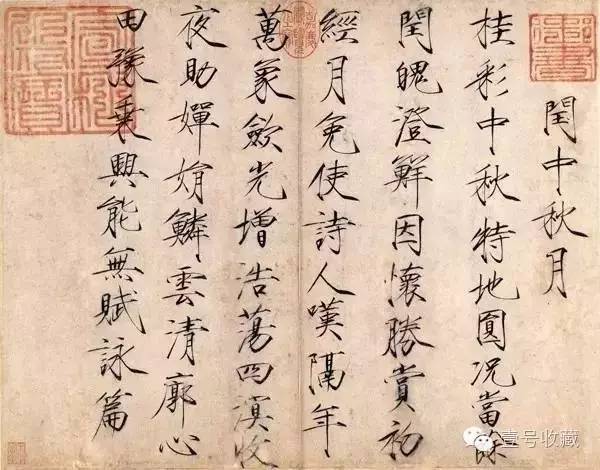 閏中秋月
桂彩中秋特地圓况當餘
閏魄澄鮮因懷勝賞初
經月免使詩人嘆隔年
萬象歛光增浩蕩四溟收
夜助嬋娟鱗雲清廓心
田豫乘興能無賦詠篇
壹号收藏